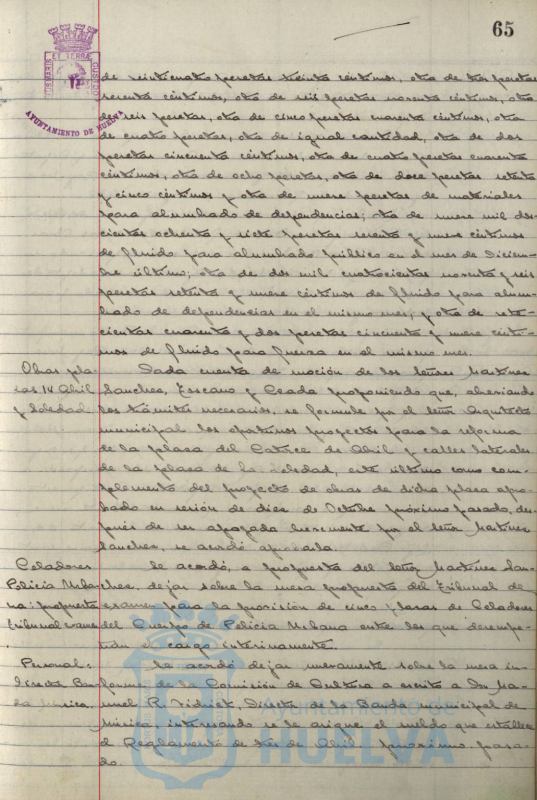 65
ET TERRÆ
AYUNTAMIENTO DE HUELVA
de veinticuatro pesetas treinta céntimos, otra de tres pesetas
sesenta céntimos, otra de seis pesetas noventa céntimos, otra
de seis pesetas, otra de cinco pesetas cuarenta céntimos, otra
de cuatro pesetas, otra de igual cantidad, otra de dos
pesetas cincuenta céntimos, otra de cuatro pesetas cuarenta
céntimos, otra de ocho pesetas, otra de doce pesetas setenta
y cinco céntimos y otra de nueve pesetas de materiales
para alumbrado de dependencias; otra de nueve mil dos-
cientas ochenta y siete pesetas sesenta y nueve céntimos
de fluido para alumbrado público en el mes de Diciem-
bre último; otra de dos mil cuatrocientas noventa y seis
pesetas setenta y nueve céntimos de fluido para alum-
brado de dependencias en el mismo mes; y otra de sete-
cientas cuarenta y dos pesetas cincuenta y nueve cénti-
mos de fluido para fuerza en el mismo mes.
Obras pla- Dada cuenta de moción de los señores Martínez
zas 14 Abril Sanchez, Tescano y Ceada proponiendo que, abreviando
y Soledad. los trámites necesarios, se formule por el señor Arquitecto
municipal los oportunos proyectos para la reforma
de la plaza del Catorce de Abril y calles laterales
de la plaza de la Soledad, este último como com-
plemento del proyecto de obras de dicha plaza apro-
bado en sesión de diez de Octubre próximo pasado, des-
pués de ser apoyada brevemente por el señor Martínez
Sanchez, se acordó aprobarla.
Celadores Se acordó, a propuesta del señor Martínez San-
Policía Urba- chez, dejar sobre la mesa propuesta del Tribunal de
na: propuesta examen para la provisión de cinco plazas de Celadores
tribunal examen del Cuerpo de Policía Urbana entre los que desempe-
ñan el cargo interinamente.
Personal: Se acordó dejar nuevamente sobre la mesa in-
Director Ban- forme de la Comisión de Cultura a escrito a Don Ma-
da Música. nuel R. Fidrich, Director de la Banda municipal de
Música, interesando se le asigne el sueldo que establece
el Reglamento de tres de Abril próximo pasa-
do.
Ayuntamiento de
HUELVA